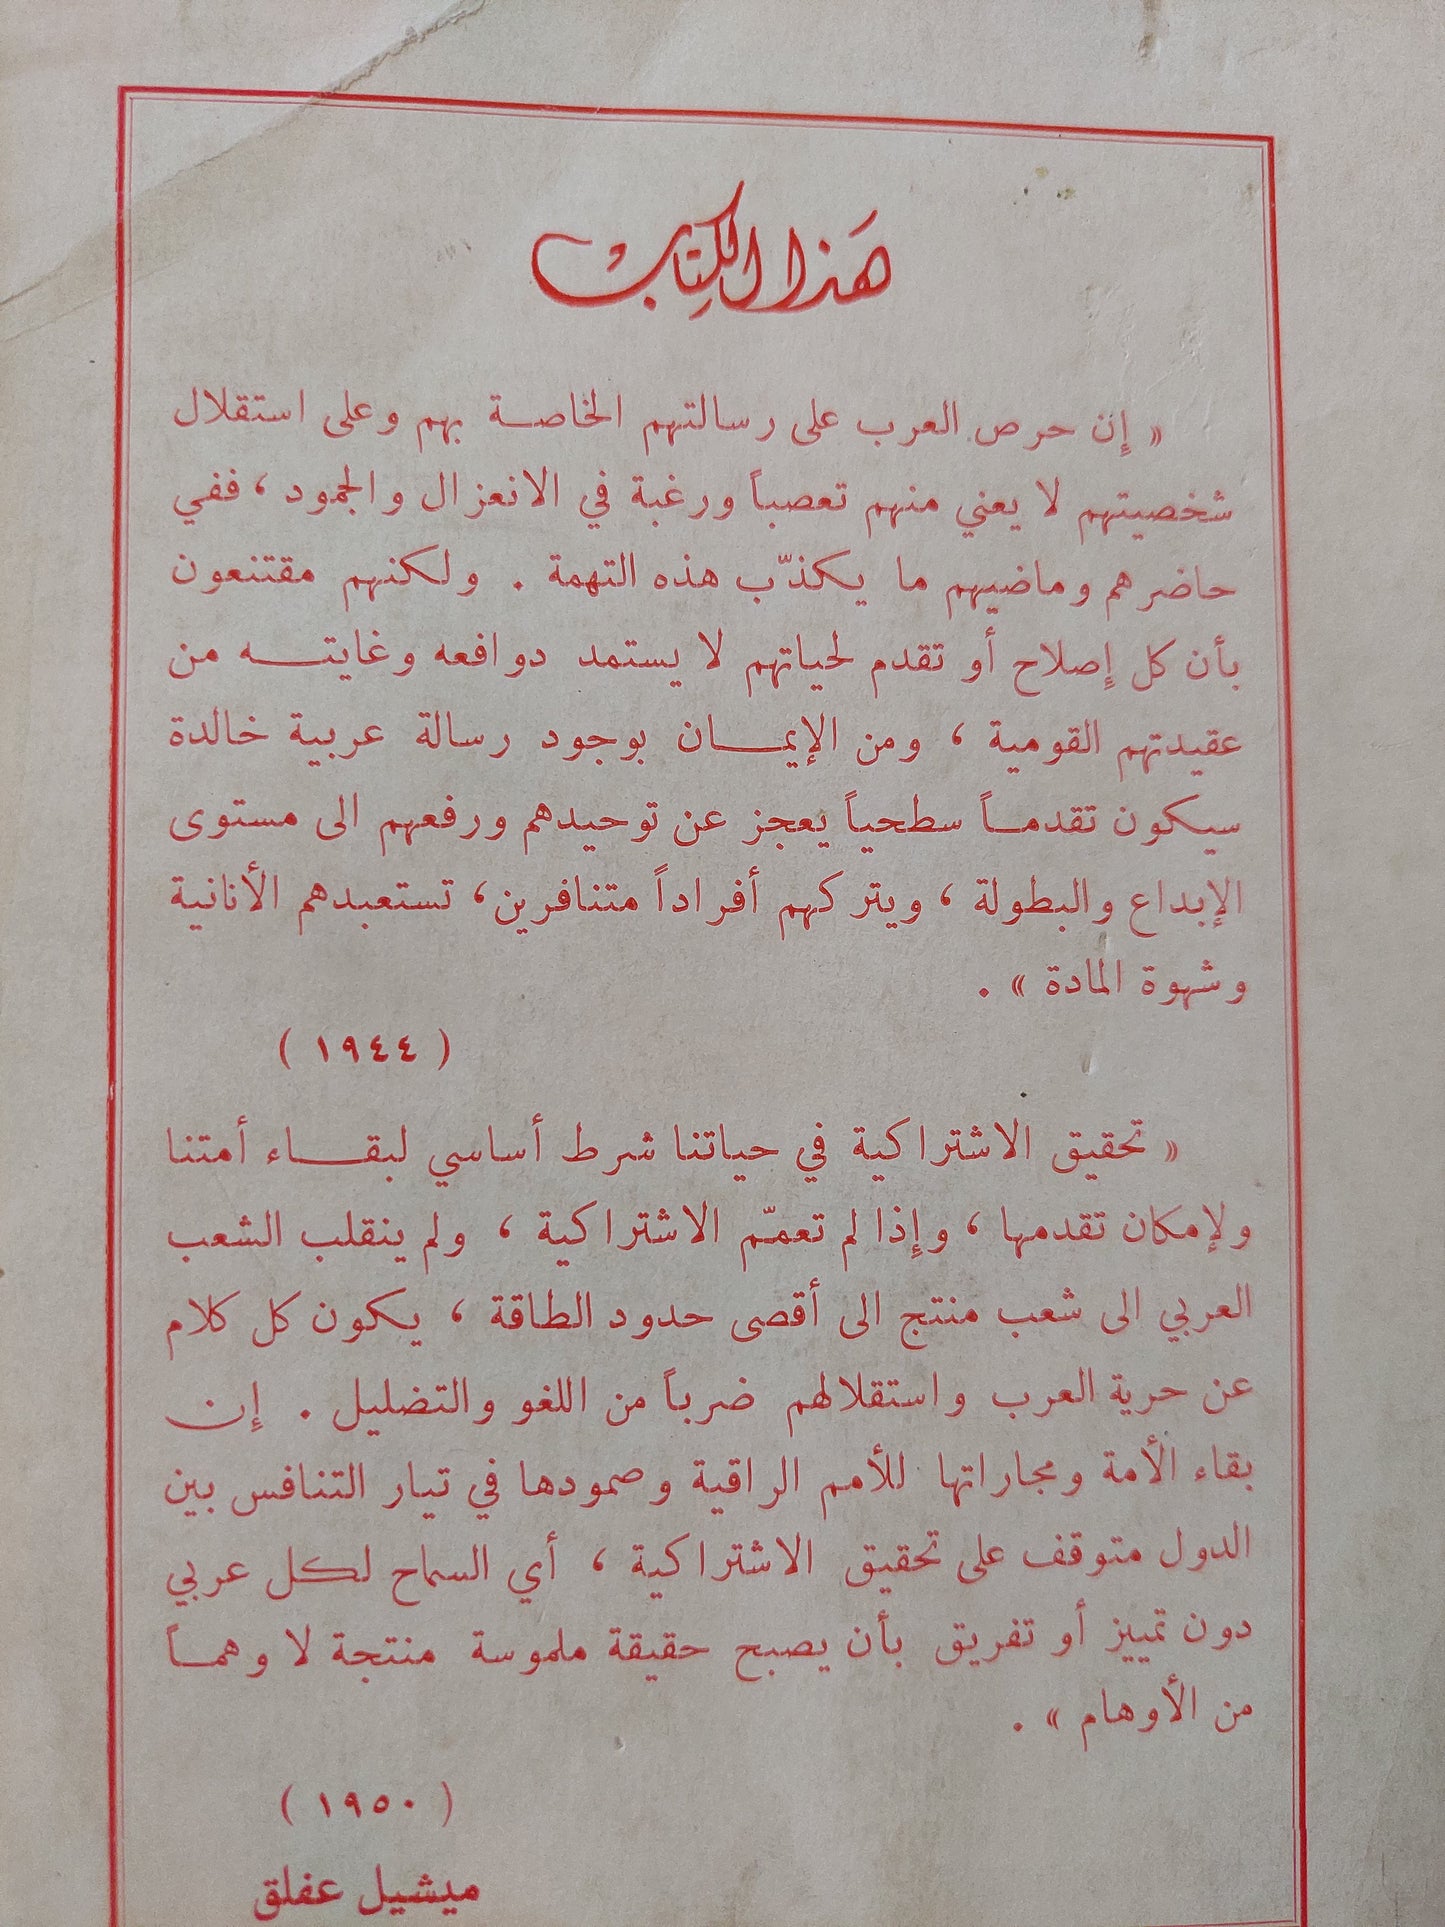 هَذا الكِتاب
« إِن حرص العرب على رسالتهم الخاصة بهم وعلى استقلال
شخصيتهم لا يعني منهم تعصباً ورغبة في الانعزال والجمود ، ففي
حاضرهم وماضيهم ما يكذّب هذه التهمة . ولكنهم مقتنعون
بأن كل إِصلاح أو تقدم لحياتهم لا يستمد دوافعه وغايته من
عقيدتهم القومية ، ومن الإيمان بوجود رسالة عربية خالدة
سيكون تقدماً سطحياً يعجز عن توحيدهم ورفعهم الى مستوى
الإبداع والبطولة ، ويتركهم أفراداً متنافرين ، تستعبدهم الأنانية
وشهوة المادة » .
( ١٩٤٤ )
« تحقيق الاشتراكية في حياتنا شرط أساسي لبقاء أمتنا
ولإمكان تقدمها ، وإِذا لم تعمّم الاشتراكية ، ولم ينقلب الشعب
العربي الى شعب منتج الى أقصى حدود الطاقة ، يكون كل كلام
عن حرية العرب واستقلالهم ضرباً من اللغو والتضليل . إِن
بقاء الأمة ومجاراتها للأمم الراقية وصمودها في تيار التنافس بين
الدول متوقف على تحقيق الاشتراكية ، أي السماح لكل عربي
دون تمييز أو تفريق بأن يصبح حقيقة ملموسة منتجة لا وهماً
من الأوهام » .
( ١٩٥٠ )
ميشيل عفلق